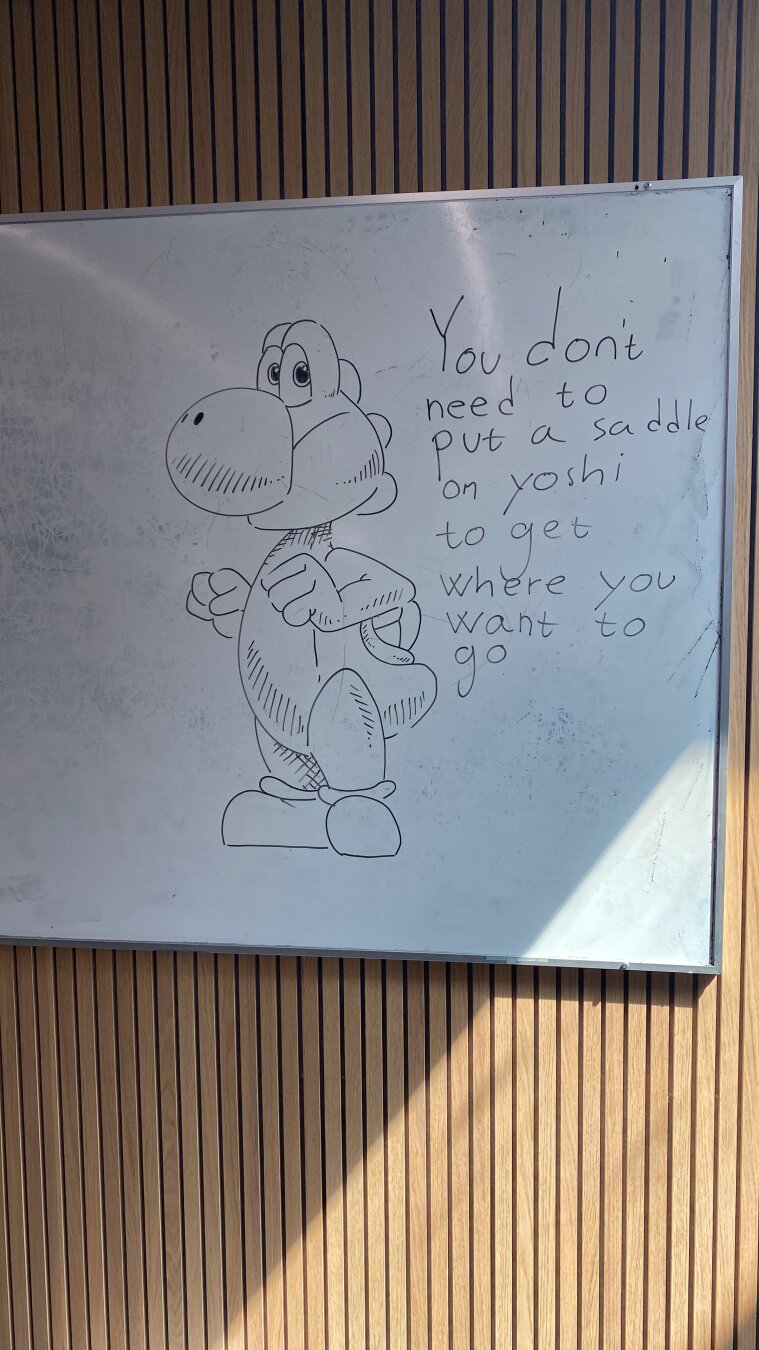 You don't
need to
put a saddle
on yoshi
to get
where you
want to
go